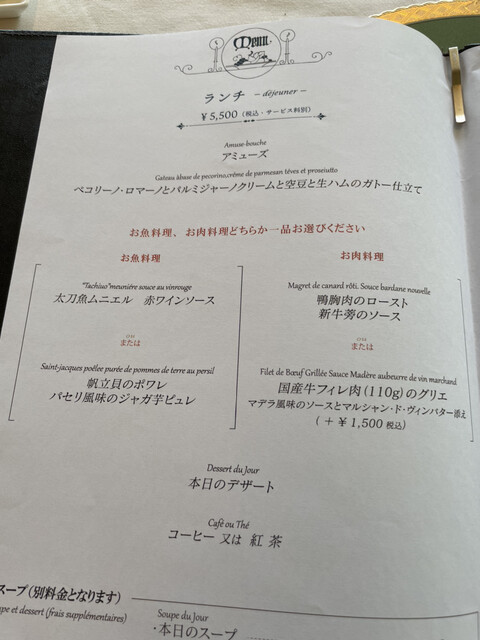 Menu
ランチ －déjeuner－
￥5,500（税込・サービス料別）
Amuse-bouche
アミューズ
Gateau àbase de pecorino,crème de parmesan fèves et prosciutto
ペコリーノ・ロマーノとパルミジャーノクリームと空豆と生ハムのガトー仕立て
お魚料理、お肉料理どちらか一品お選びください
お魚料理
"Tachiuo"meunière souce au vinrouge
太刀魚ムニエル　赤ワインソース
または
Saint-jacques poêlee purée de pommes de terre au persil
帆立貝のポワレ
パセリ風味のジャガ芋ピュレ
お肉料理
Magret de canard rôti. Souce bardane nouvelle
鴨胸肉のロースト
新牛蒡のソース
または
Filet de Bœuf Grillée Sauce Madère aubeurre de vin marchand
国産牛フィレ肉(110g)のグリエ
マデラ風味のソースとマルシャン・ド・ヴィンバター添え
(＋￥1,500 税込)
Dessert du Jour
本日のデザート
Cafè ou Thé
コーヒー 又は 紅 茶
スープ（別料金となります）
et dessert (frais supplémentaires)
Soupe du Jour
・本日のスープ